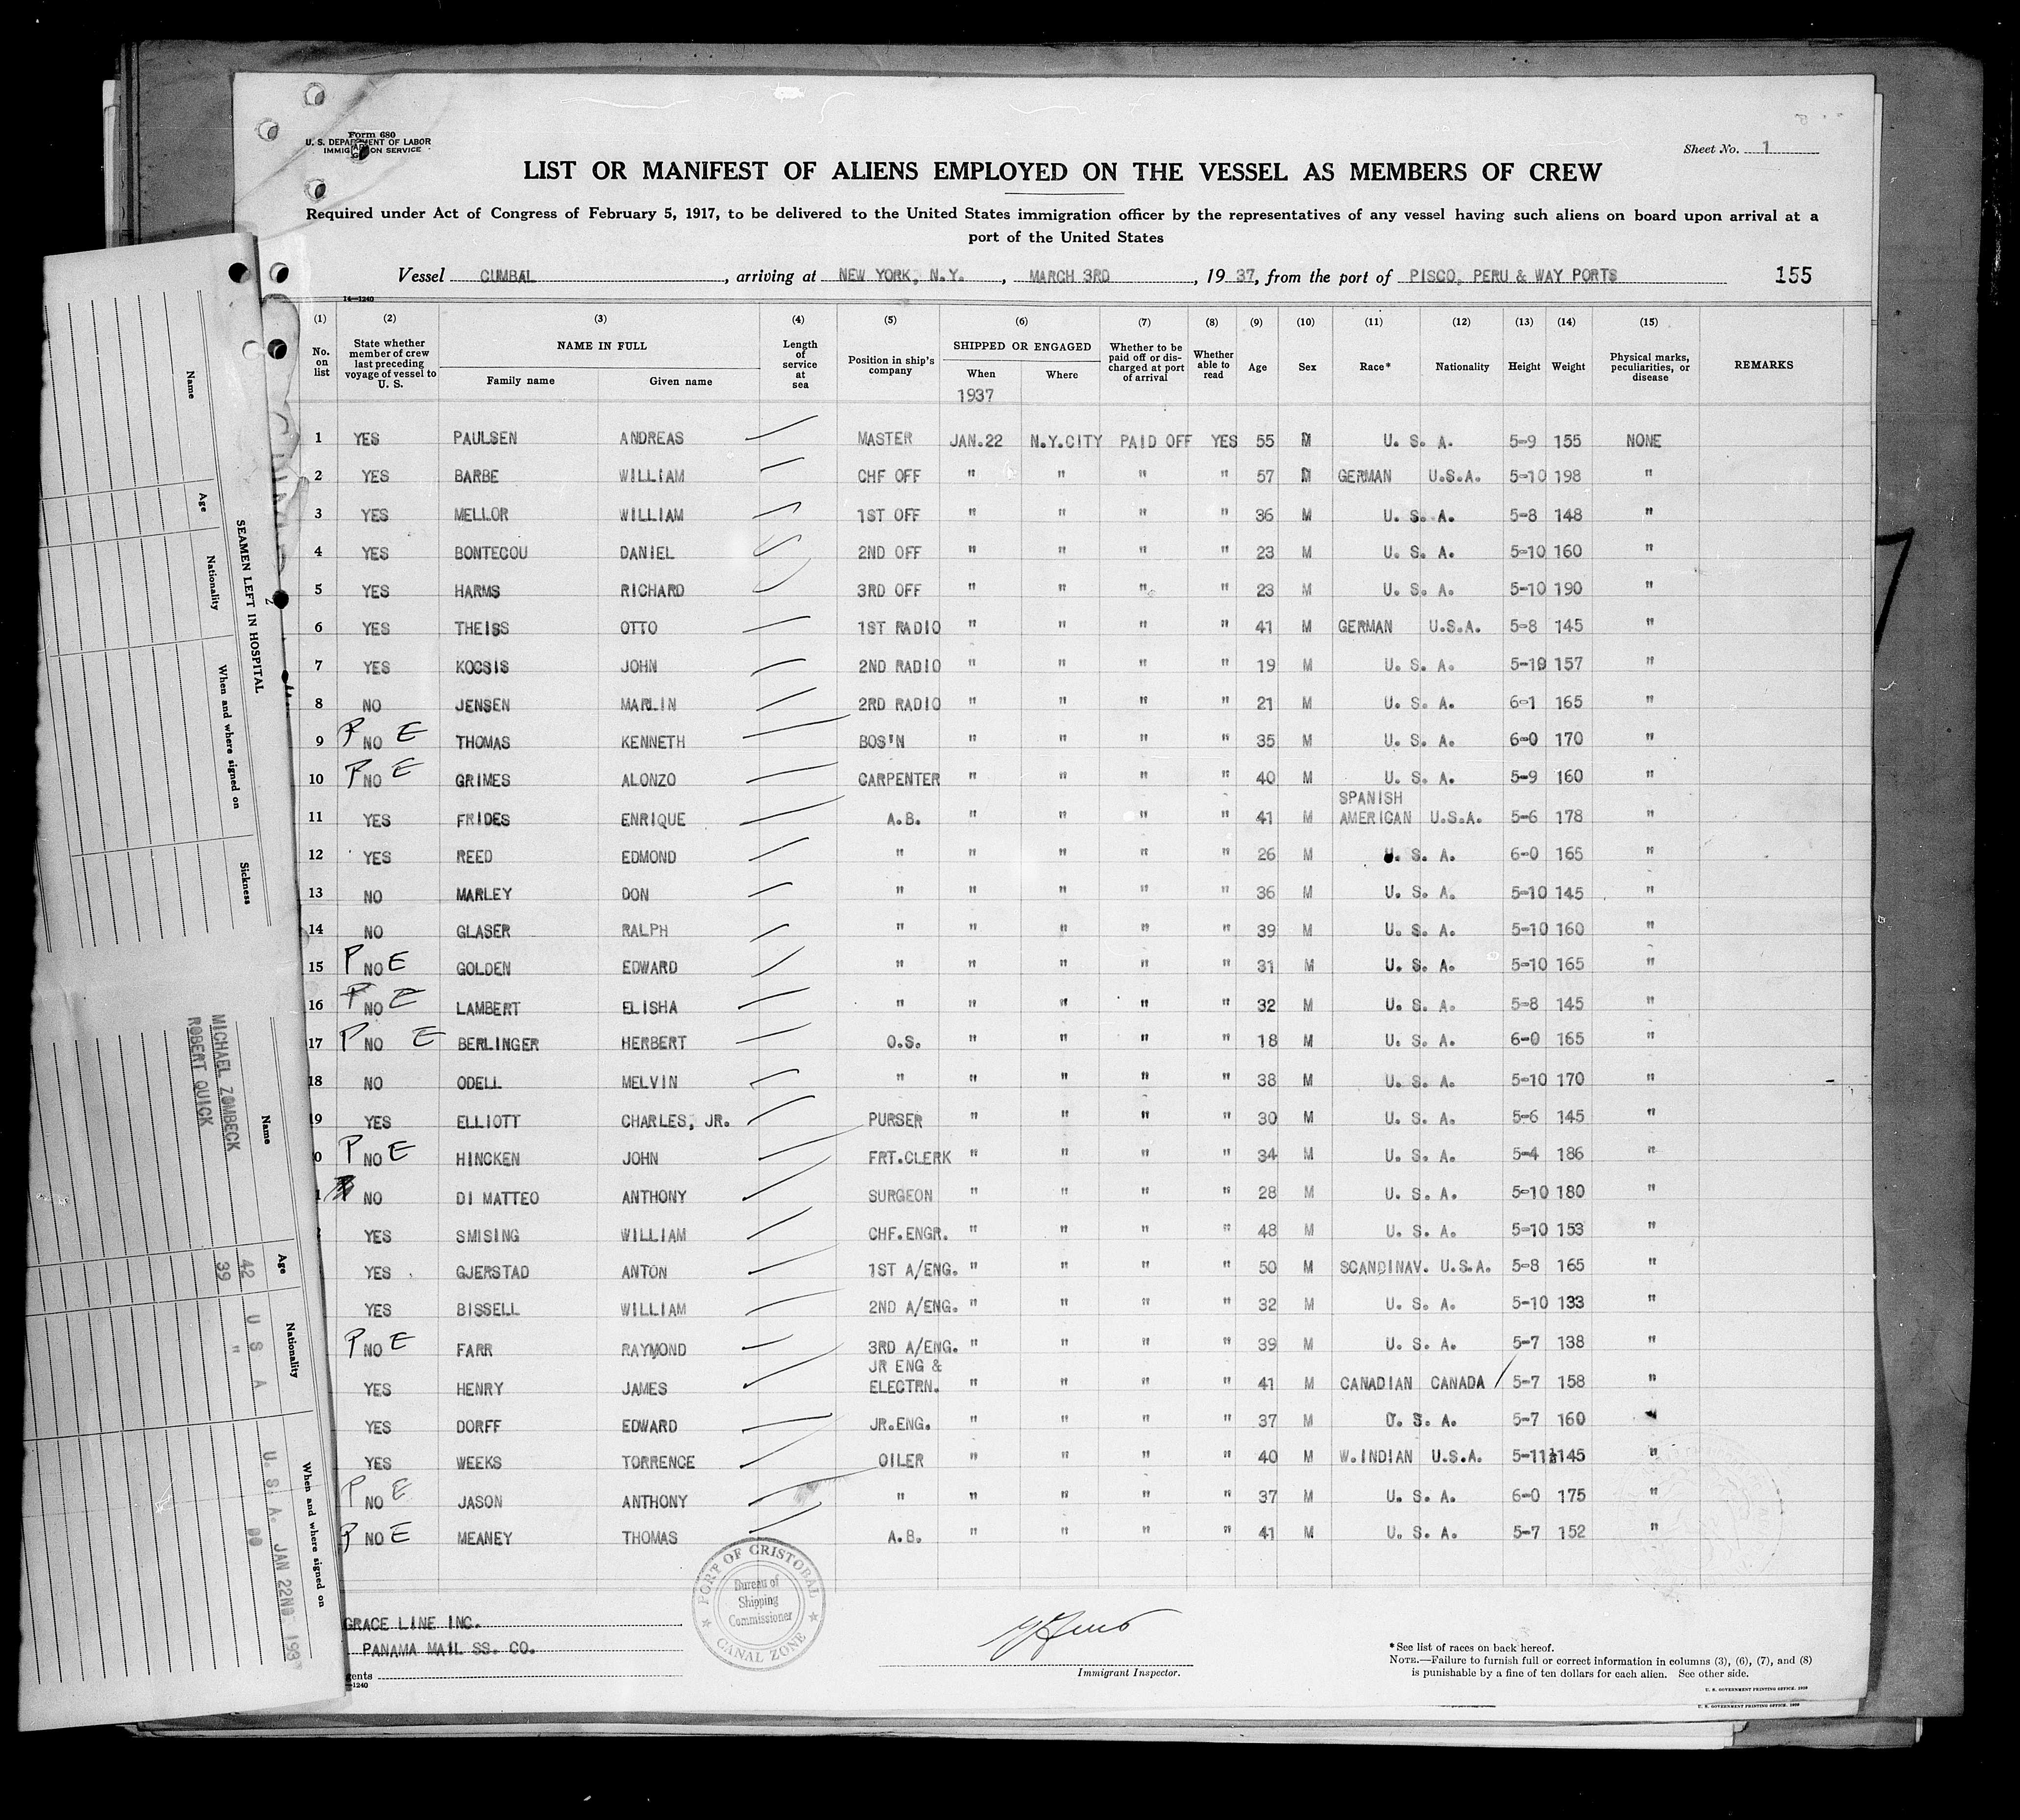 Form 680
U. S. DEPARTMENT OF LABOR
IMMIGRATION SERVICE
Sheet No. 1
LIST OR MANIFEST OF ALIENS EMPLOYED ON THE VESSEL AS MEMBERS OF CREW
Required under Act of Congress of February 5, 1917, to be delivered to the United States immigration officer by the representatives of any vessel having such aliens on board upon arrival at a
port of the United States
Vessel CUMBAL, arriving at NEW YORK, N.Y., MARCH 3RD, 19 37, from the port of PISCO, PERU & WAY PORTS 155
14—1240
(1) (2) (3) (4) (5) (6) (7) (8) (9) (10) (11) (12) (13) (14) (15)
No. on list State whether member of crew last preceding voyage of vessel to U. S. NAME IN FULL Family name Given name Length of service at sea Position in ship's company SHIPPED OR ENGAGED When Where Whether to be paid off or discharged at port of arrival Whether able to read Age Sex Race* Nationality Height Weight Physical marks, peculiarities, or disease REMARKS
1937
1 YES PAULSEN ANDREAS MASTER JAN.22 N.Y.CITY PAID OFF YES 55 M U. S. A. 5-9 155 NONE
2 YES BARBE WILLIAM CHF OFF " " " " 57 M GERMAN U.S.A. 5-10 198 "
3 YES MELLOR WILLIAM 1ST OFF " " " " 36 M U. S. A. 5-8 148 "
4 YES BONTECOU DANIEL 2ND OFF " " " " 23 M U. S. A. 5-10 160 "
5 YES HARMS RICHARD 3RD OFF " " " " 23 M U. S. A. 5-10 190 "
6 YES THEISS OTTO 1ST RADIO " " " " 41 M GERMAN U.S.A. 5-8 145 "
7 YES KOCSIS JOHN 2ND RADIO " " " " 19 M U. S. A. 5-10 157 "
8 NO JENSEN MARLIN 2RD RADIO " " " " 21 M U. S. A. 6-1 165 "
9 P NO E THOMAS KENNETH BOS'N " " " " 35 M U. S. A. 6-0 170 "
10 P NO E GRIMES ALONZO CARPENTER " " " " 40 M U. S. A. 5-9 160 "
SPANISH
11 YES FRIDES ENRIQUE A.B. " " " " 41 M AMERICAN U.S.A. 5-6 178 "
12 YES REED EDMOND " " " " " 26 M U. S. A. 6-0 165 "
13 NO MARLEY DON " " " " " 36 M U. S. A. 5-10 145 "
14 NO GLASER RALPH " " " " " 39 M U. S. A. 5-10 160 "
15 P NO E GOLDEN EDWARD " " " " " 31 M U. S. A. 5-10 165 "
16 P NO E LAMBERT ELISHA " " " " " 32 M U. S. A. 5-8 145 "
17 P NO E BERLINGER HERBERT O.S. " " " " 18 M U. S. A. 6-0 165 "
18 NO ODELL MELVIN " " " " " 38 M U. S. A. 5-10 170 "
19 YES ELLIOTT CHARLES, JR. PURSER " " " " 30 M U. S. A. 5-6 145 "
0 P NO E HINCKEN JOHN FRT.CLERK " " " " 34 M U. S. A. 5-4 186 "
1 NO DI MATTEO ANTHONY SURGEON " " " " 28 M U. S. A. 5-10 180 "
YES SMISING WILLIAM CHF.ENGR. " " " " 48 M U. S. A. 5-10 153 "
YES GJERSTAD ANTON 1ST A/ENG. " " " " 50 M SCANDINAV. U.S.A. 5-8 165 "
YES BISSELL WILLIAM 2ND A/ENG. " " " " 32 M U. S. A. 5-10 133 "
P NO E FARR RAYMOND 3RD A/ENG. " " " " 39 M U. S. A. 5-7 138 "
JR ENG &
YES HENRY JAMES ELECTRN. " " " " 41 M CANADIAN CANADA 5-7 158 "
YES DORFF EDWARD JR.ENG. " " " " 37 M U. S. A. 5-7 160 "
YES WEEKS TORRENCE OILER " " " " 40 M W.INDIAN U.S.A. 5-11½ 145 "
P NO E JASON ANTHONY " " " " " 37 M U. S. A. 6-0 175 "
P NO E MEANEY THOMAS A.B. " " " " 41 M U. S. A. 5-7 152 "
GRACE LINE INC.
PANAMA MAIL SS. CO.
gents
—1240
PORT OF CRISTOBAL
Bureau of
Shipping
Commissioner
CANAL ZONE
Immigrant Inspector.
*See list of races on back hereof.
NOTE.—Failure to furnish full or correct information in columns (3), (6), (7), and (8)
is punishable by a fine of ten dollars for each alien. See other side.
U. S. GOVERNMENT PRINTING OFFICE
U. S. GOVERNMENT PRINTING OFFICE
SEAMEN LEFT IN HOSPITAL
Name Age Nationality When and where signed on Sickness
Name Age Nationality When and where signed on
MICHAEL ZOMBECK 42 U S A U. S. A. JAN 22ND 193
ROBERT QUICK 39 "